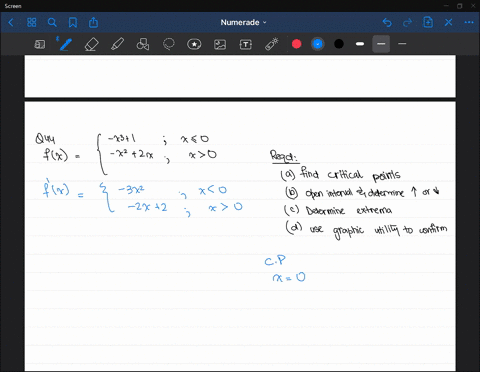 Screen
Numerade
Q44
f(x) = { -x3+1 ; x ≤ 0
-x² + 2x ; x > 0
f'(x) = { -3x² , x < 0
-2x + 2 ; x > 0
Reqd:
(a) find critical points
(b) open interval & determine ↑ or ↓
(c) Determine extrema
(d) use graphic utility to confirm
C.P
x = 0